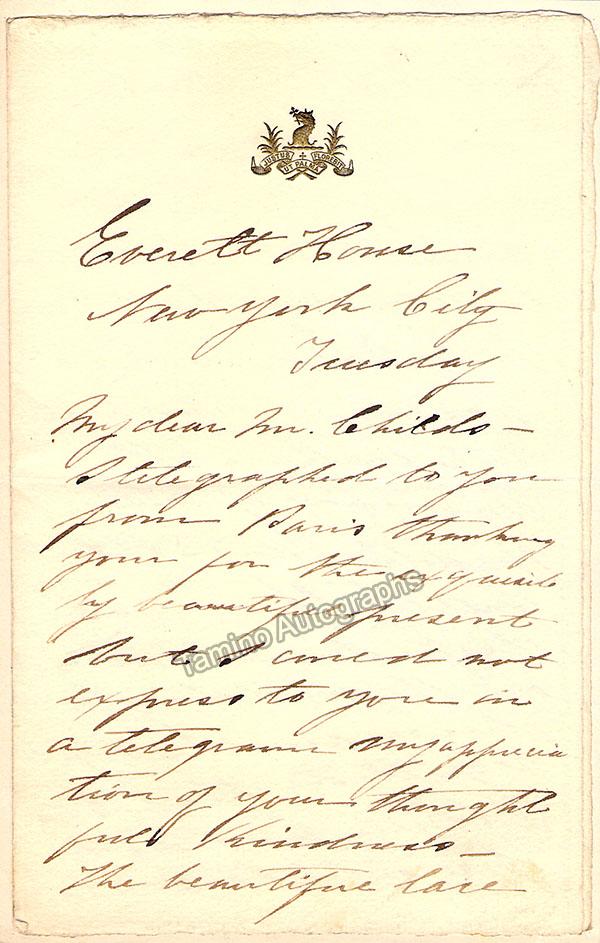 JUSTUS FLOREBIT
UT PALMA
Everett House
New York City
Tuesday
My dear Mr. Childs —
I telegraphed to you
from Paris thanking
you for the exquisite
ly beautiful present
but I could not
express to you in
a telegram my apprecia
tion of your thought
ful kindness —
The beautiful lace
Tamino Autographs